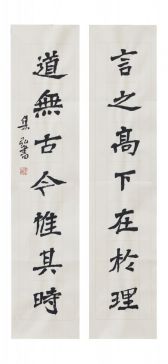 言之高下在於理
道無古今惟其時